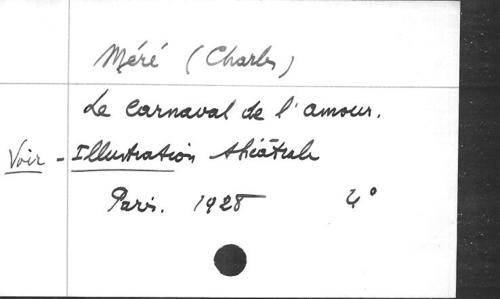 Méré (Charles)
Le Carnaval de l'amour.
Voir - Illustration théâtrale
Paris. 1928 4°